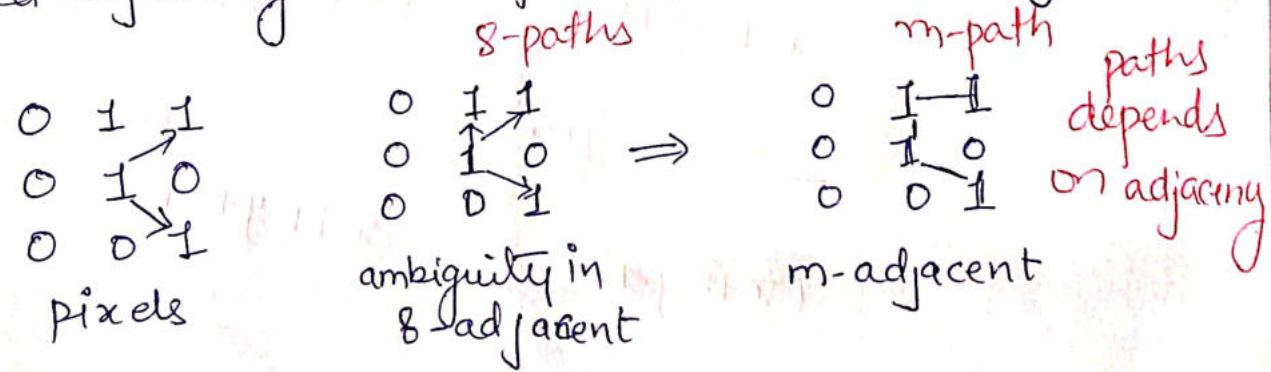 8-paths
m-path
paths
depends
on adjaceny
0 1 1
0 1 0
0 0 1
pixels
0 1 1
0 1 0
0 0 1
ambiguity in
8-adjacent
⇒
0 1 1
0 1 0
0 0 1
m-adjacent